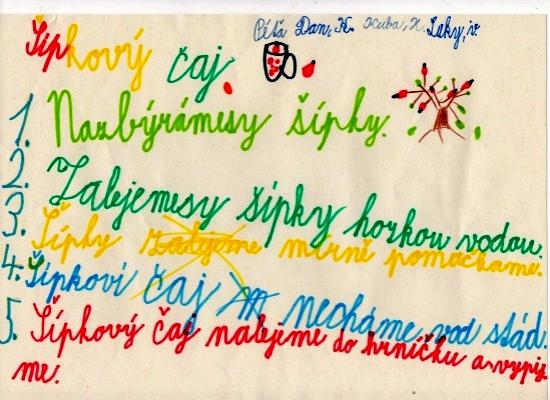 Péťa Dan, K. Kuba, K. Luky, V.
Šípkový čaj
1. Nazbýrámesy šípky.
2. Zalejemesy šípky horkou vodou.
3. Šípky zalejeme mírně pomačkáme.
4. Šípkoví čaj necháme vod stád.
5. Šípkový čaj nalejeme do hrníčku a vypij
me.